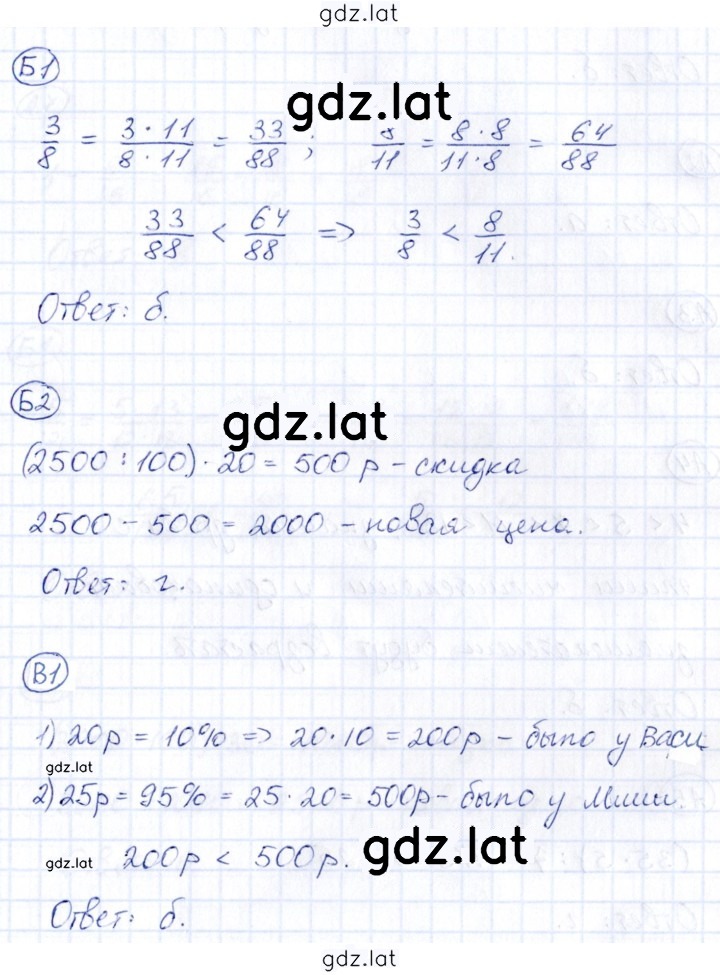 gdz.lat
Б1
gdz.lat
3/8 = 3·11/8·11 = 33/88 ; 8/11 = 8·8/11·8 = 64/88
33/88 < 64/88 => 3/8 < 8/11.
Ответ: б.
Б2
gdz.lat
(2500 : 100) · 20 = 500 р – скидка
2500 – 500 = 2000 – новая цена.
Ответ: г.
В1
1) 20р = 10% => 20·10 = 200р – было у Васи
gdz.lat
2) 25р = 95% = 25·20 = 500р – было у Миши.
gdz.lat 200р < 500р. gdz.lat
Ответ: б.
gdz.lat